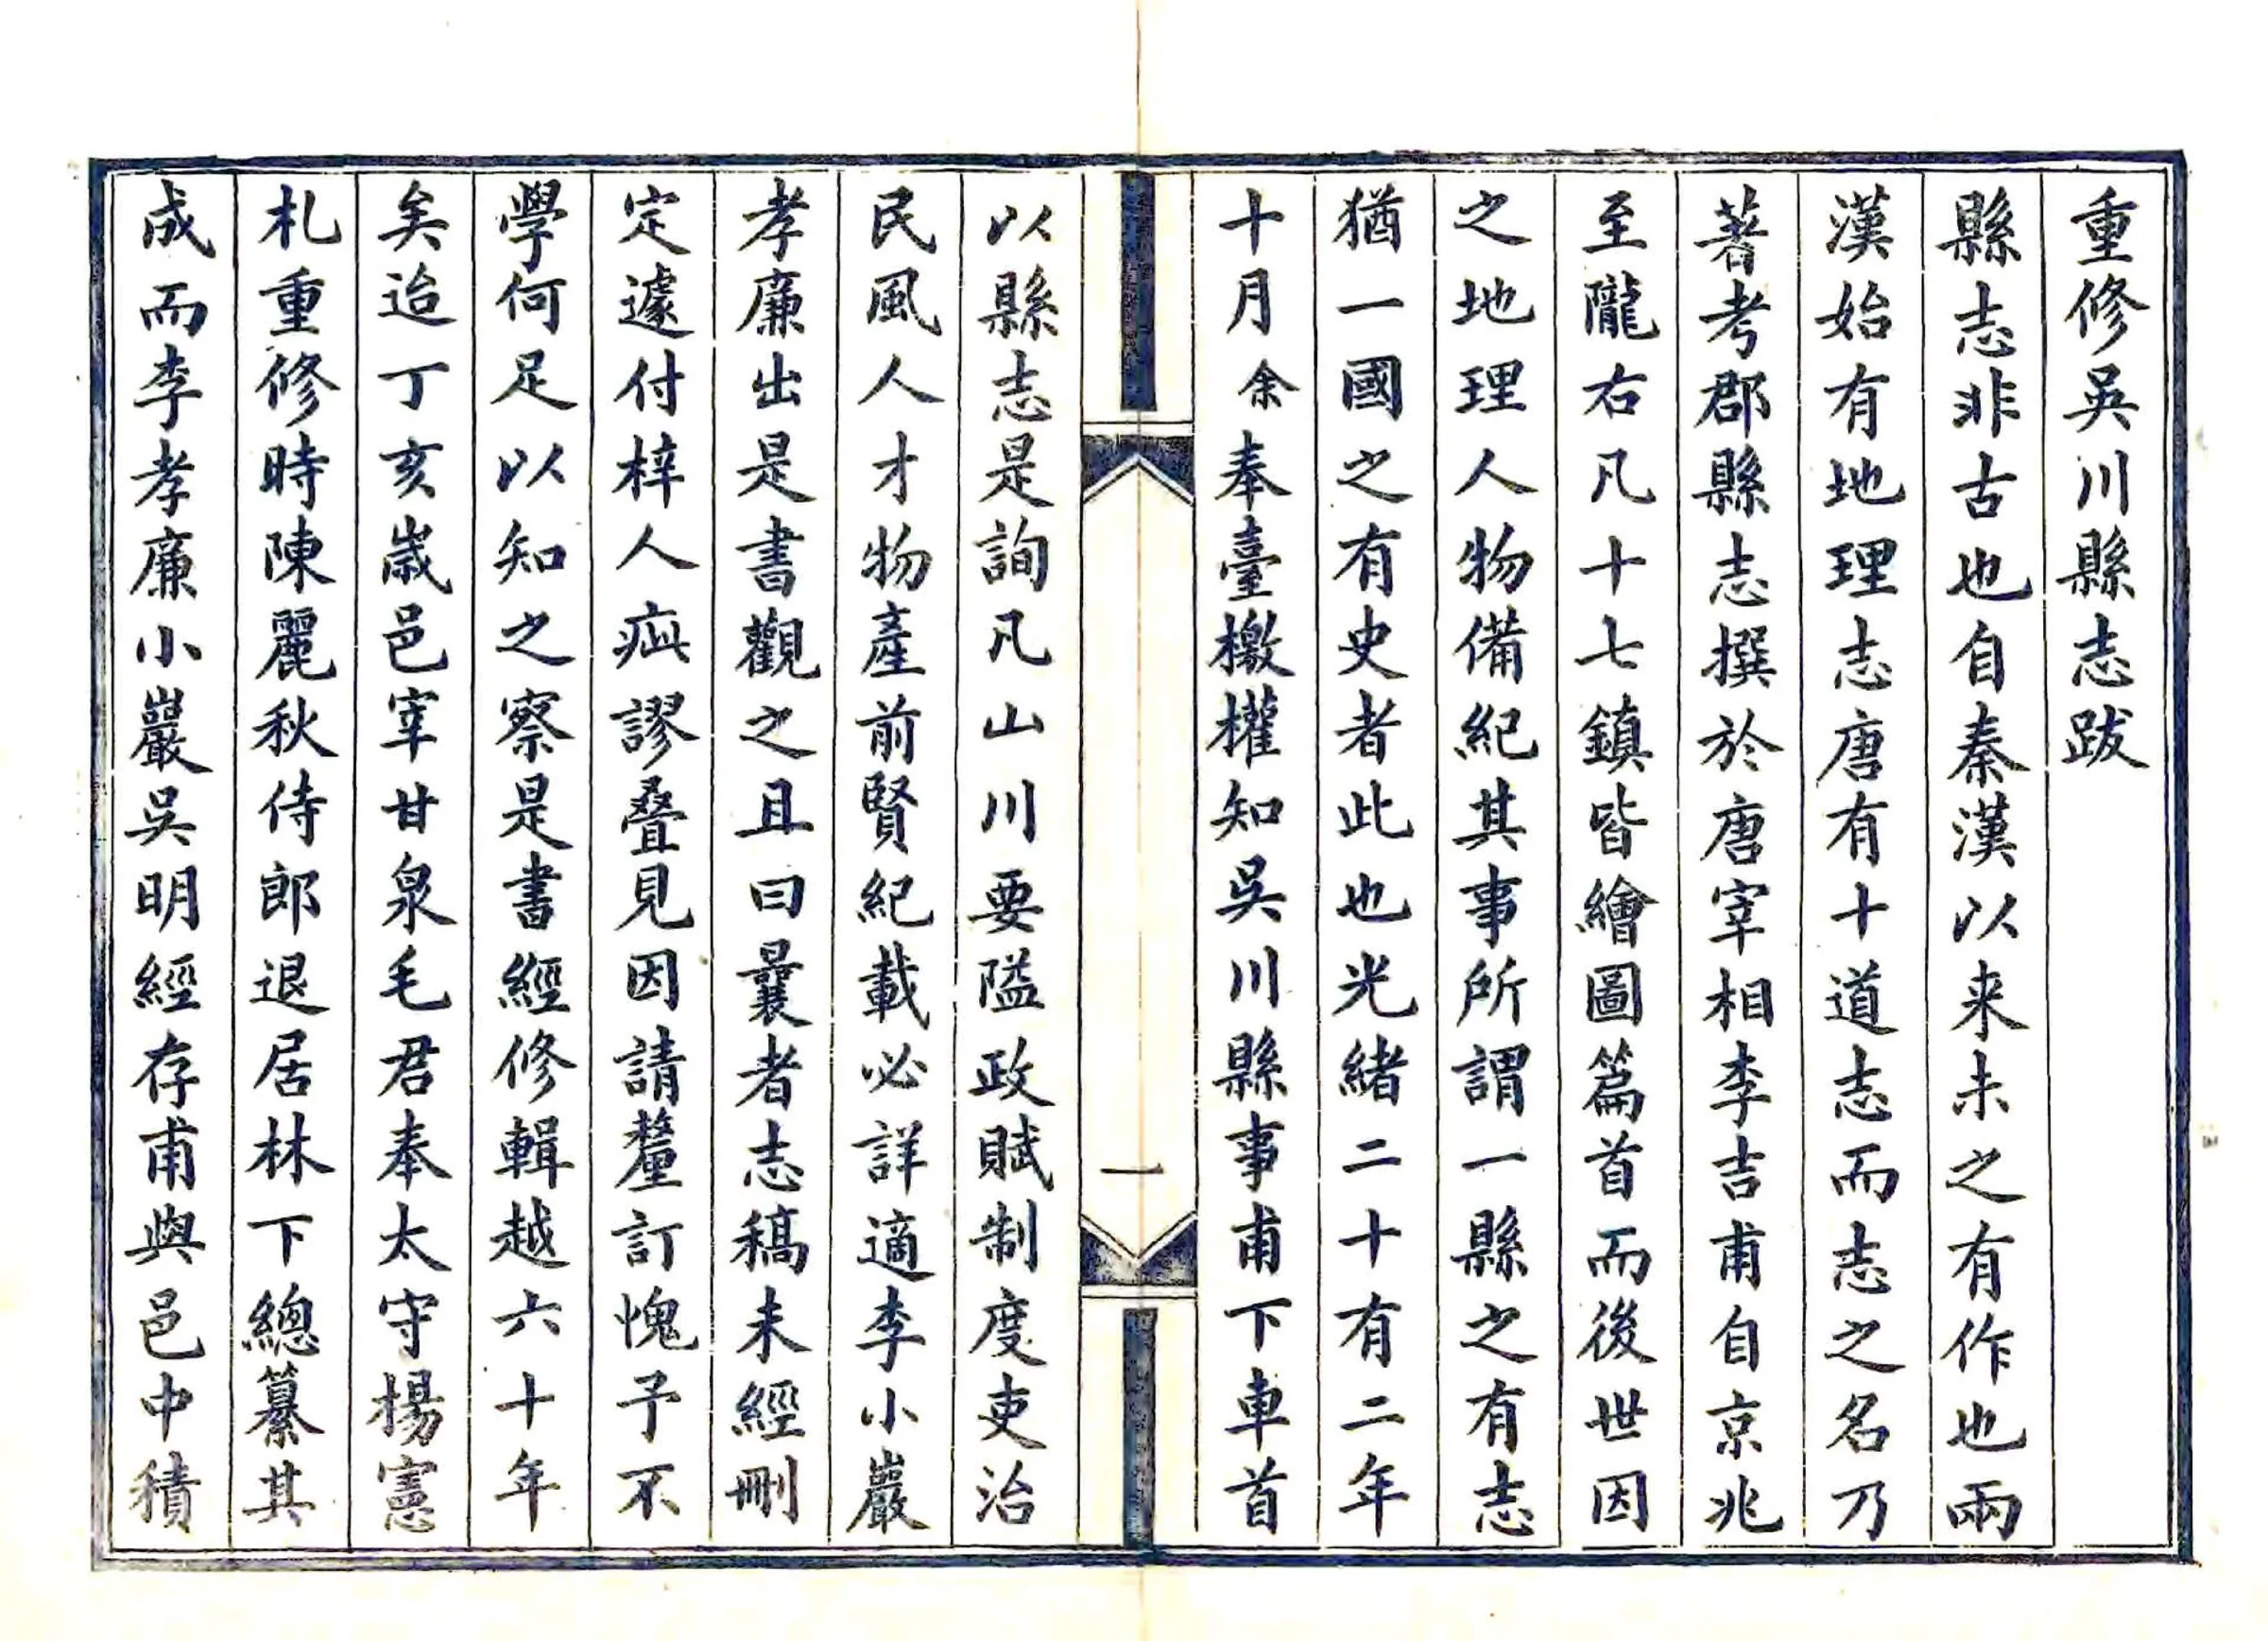 重修吳川縣志跋
縣志非古也自秦漢以来未之有作也兩
漢始有地理志唐有十道志而志之名乃
著考郡縣志撰於唐宰相李吉甫自京兆
至隴右凡十七鎮皆繪圖篇首而後世因
之地理人物備紀其事所謂一縣之有志
猶一國之有史者此也光緒二十有二年
十月余奉臺檄權知吳川縣事甫下車首
一
以縣志是詢凡山川要隘政賦制度吏治
民風人才物產前賢紀載必詳適李小巖
孝廉出是書觀之且曰曩者志稿未經刪
定遽付梓人疵謬叠見因請釐訂愧予不
學何足以知之察是書經修輯越六十年
矣迨丁亥歲邑宰甘泉毛君奉太守揚憲
札重修時陳麗秋侍郎退居林下總纂其
成而李孝廉小巖吳明經存甫與邑中積